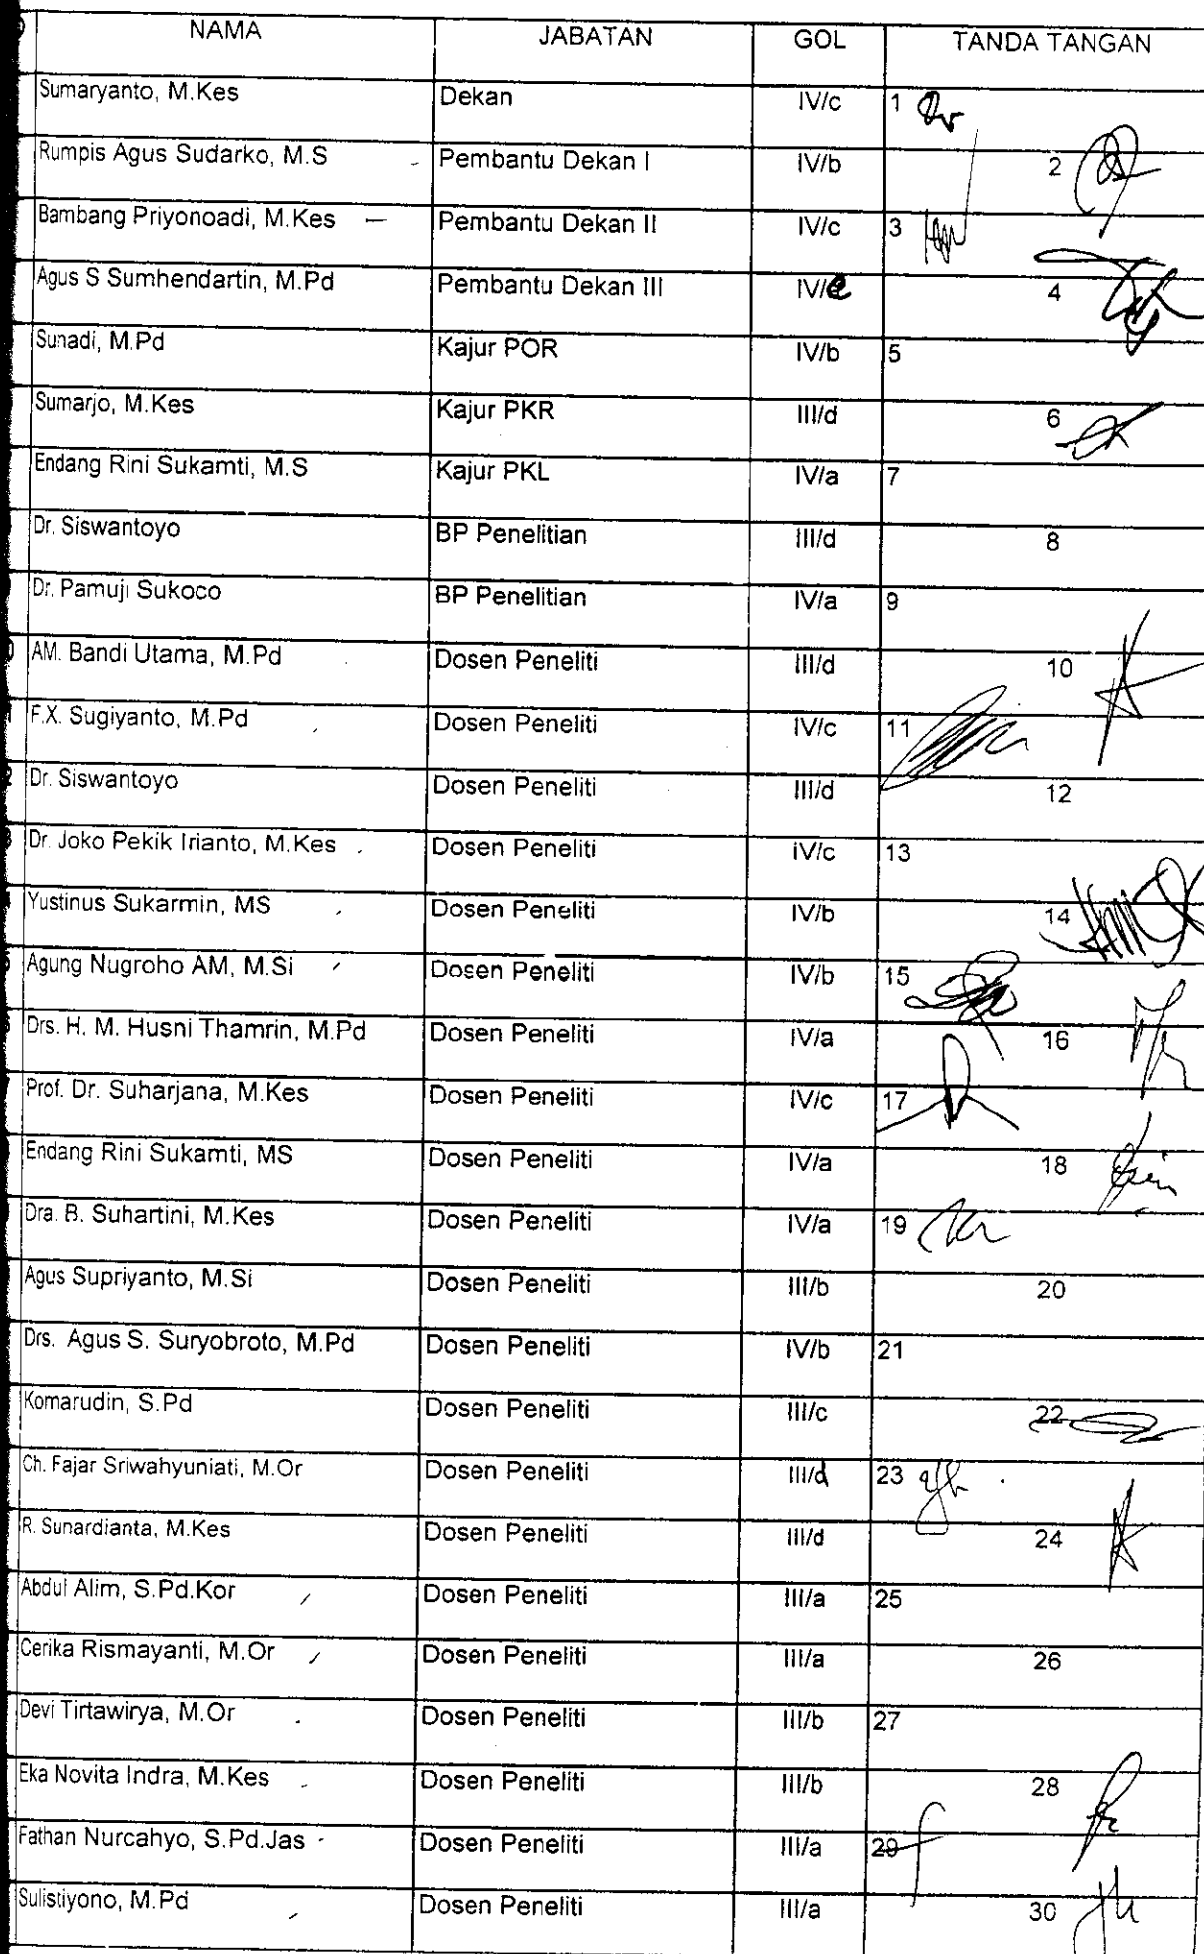 NAMA JABATAN GOL TANDA TANGAN
Sumaryanto, M.Kes Dekan IV/c 1
Rumpis Agus Sudarko, M.S Pembantu Dekan I IV/b 2
Bambang Priyonoadi, M.Kes Pembantu Dekan II IV/c 3
Agus S Sumhendartin, M.Pd Pembantu Dekan III IV/e 4
Sunadi, M.Pd Kajur POR IV/b 5
Sumarjo, M.Kes Kajur PKR III/d 6
Endang Rini Sukamti, M.S Kajur PKL IV/a 7
Dr. Siswantoyo BP Penelitian III/d 8
Dr. Pamuji Sukoco BP Penelitian IV/a 9
AM. Bandi Utama, M.Pd Dosen Peneliti III/d 10
F.X. Sugiyanto, M.Pd Dosen Peneliti IV/c 11
Dr. Siswantoyo Dosen Peneliti III/d 12
Dr. Joko Pekik Irianto, M.Kes Dosen Peneliti IV/c 13
Yustinus Sukarmin, MS Dosen Peneliti IV/b 14
Agung Nugroho AM, M.Si Dosen Peneliti IV/b 15
Drs. H. M. Husni Thamrin, M.Pd Dosen Peneliti IV/a 16
Prof. Dr. Suharjana, M.Kes Dosen Peneliti IV/c 17
Endang Rini Sukamti, MS Dosen Peneliti IV/a 18
Dra. B. Suhartini, M.Kes Dosen Peneliti IV/a 19
Agus Supriyanto, M.Si Dosen Peneliti III/b 20
Drs. Agus S. Suryobroto, M.Pd Dosen Peneliti IV/b 21
Komarudin, S.Pd Dosen Peneliti III/c 22
Ch. Fajar Sriwahyuniati, M.Or Dosen Peneliti III/d 23
R. Sunardianta, M.Kes Dosen Peneliti III/d 24
Abdul Alim, S.Pd.Kor Dosen Peneliti III/a 25
Cerika Rismayanti, M.Or Dosen Peneliti III/a 26
Devi Tirtawirya, M.Or Dosen Peneliti III/b 27
Eka Novita Indra, M.Kes Dosen Peneliti III/b 28
Fathan Nurcahyo, S.Pd.Jas Dosen Peneliti III/a 29
Sulistiyono, M.Pd Dosen Peneliti III/a 30